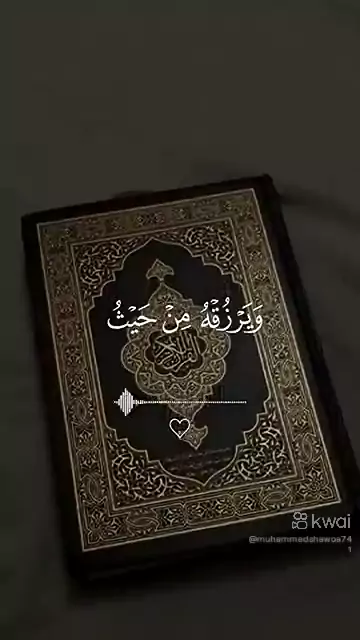 وَيَرْزُقْهُ مِنْ حَيْثُ
القرآن الكريم
kwai
@muhammedahawsa74
1